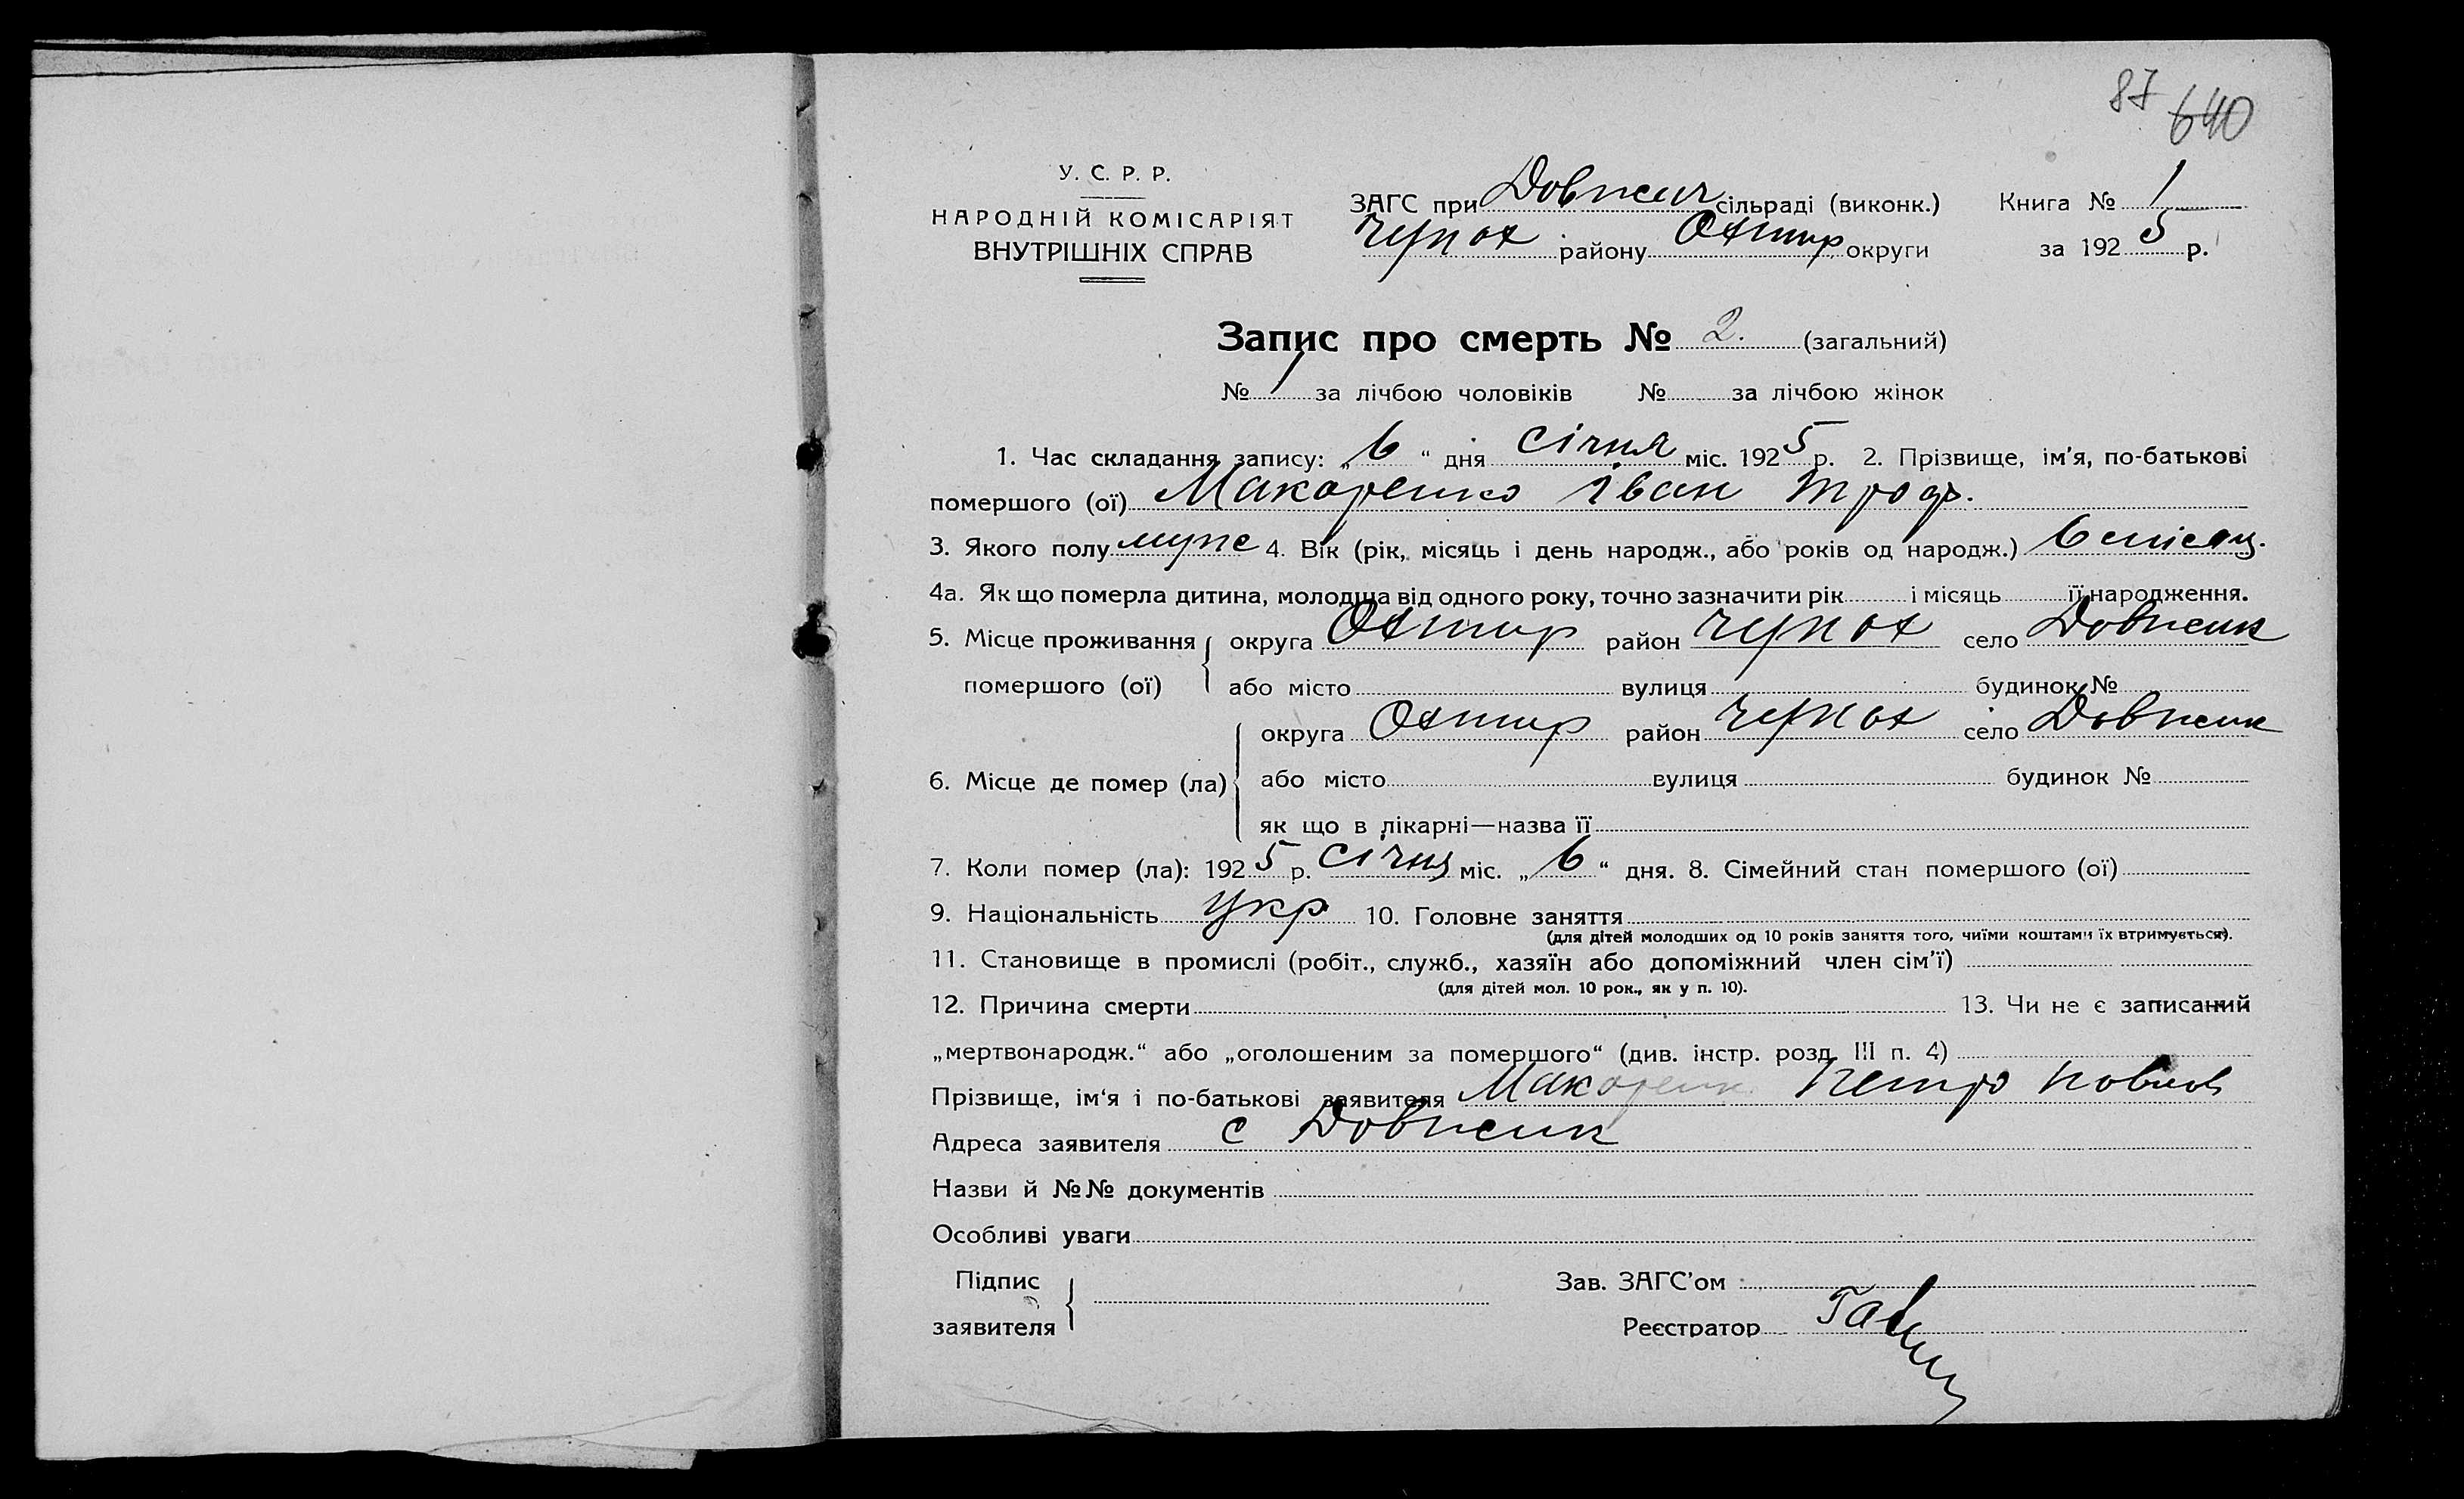 87 640
У. С. Р. Р.
НАРОДНІЙ КОМІСАРІЯТ
ВНУТРІШНІХ СПРАВ
ЗАГС при Довжич сільраді (виконк.)
Чупах району Охтир округи
Книга № 1
за 1925 р.
Запис про смерть № 2. (загальний)
№ 1 за лічбою чоловіків № за лічбою жінок
1. Час складання запису: „6“ дня січня міс. 1925 р. 2. Прізвище, ім'я, по-батькові
помершого (ої) Макаренко Іван
3. Якого полу муже 4. Вік (рік, місяць і день народж., або років од народж.) 6 місяц.
4а. Як що померла дитина, молодша від одного року, точно зазначити рік і місяць її народження.
5. Місце проживання округа Охтир район Чупах село Довжик
помершого (ої) або місто вулиця будинок №
округа Охтир район Чупах село Довжик
6. Місце де помер (ла) або місто вулиця будинок №
як що в лікарні—назва її
7. Коли помер (ла): 1925 р. січня міс. „6“ дня. 8. Сімейний стан помершого (ої)
9. Національність Укр 10. Головне заняття
(для дітей молодших од 10 років заняття того, чиїми коштами їх втримується).
11. Становище в промислі (робіт., служб., хазяїн або допоміжний член сім'ї)
(для дітей мол. 10 рок., як у п. 10).
12. Причина смерти 13. Чи не є записаний
„мертвонародж.“ або „оголошеним за помершого“ (див. інстр. розд. III п. 4)
Прізвище, ім'я і по-батькові заявителя Макаренк Петро Павлов
Адреса заявителя с Довжик
Назви й №№ документів
Особливі уваги
Підпис
заявителя
Зав. ЗАГС'ом
Реєстратор